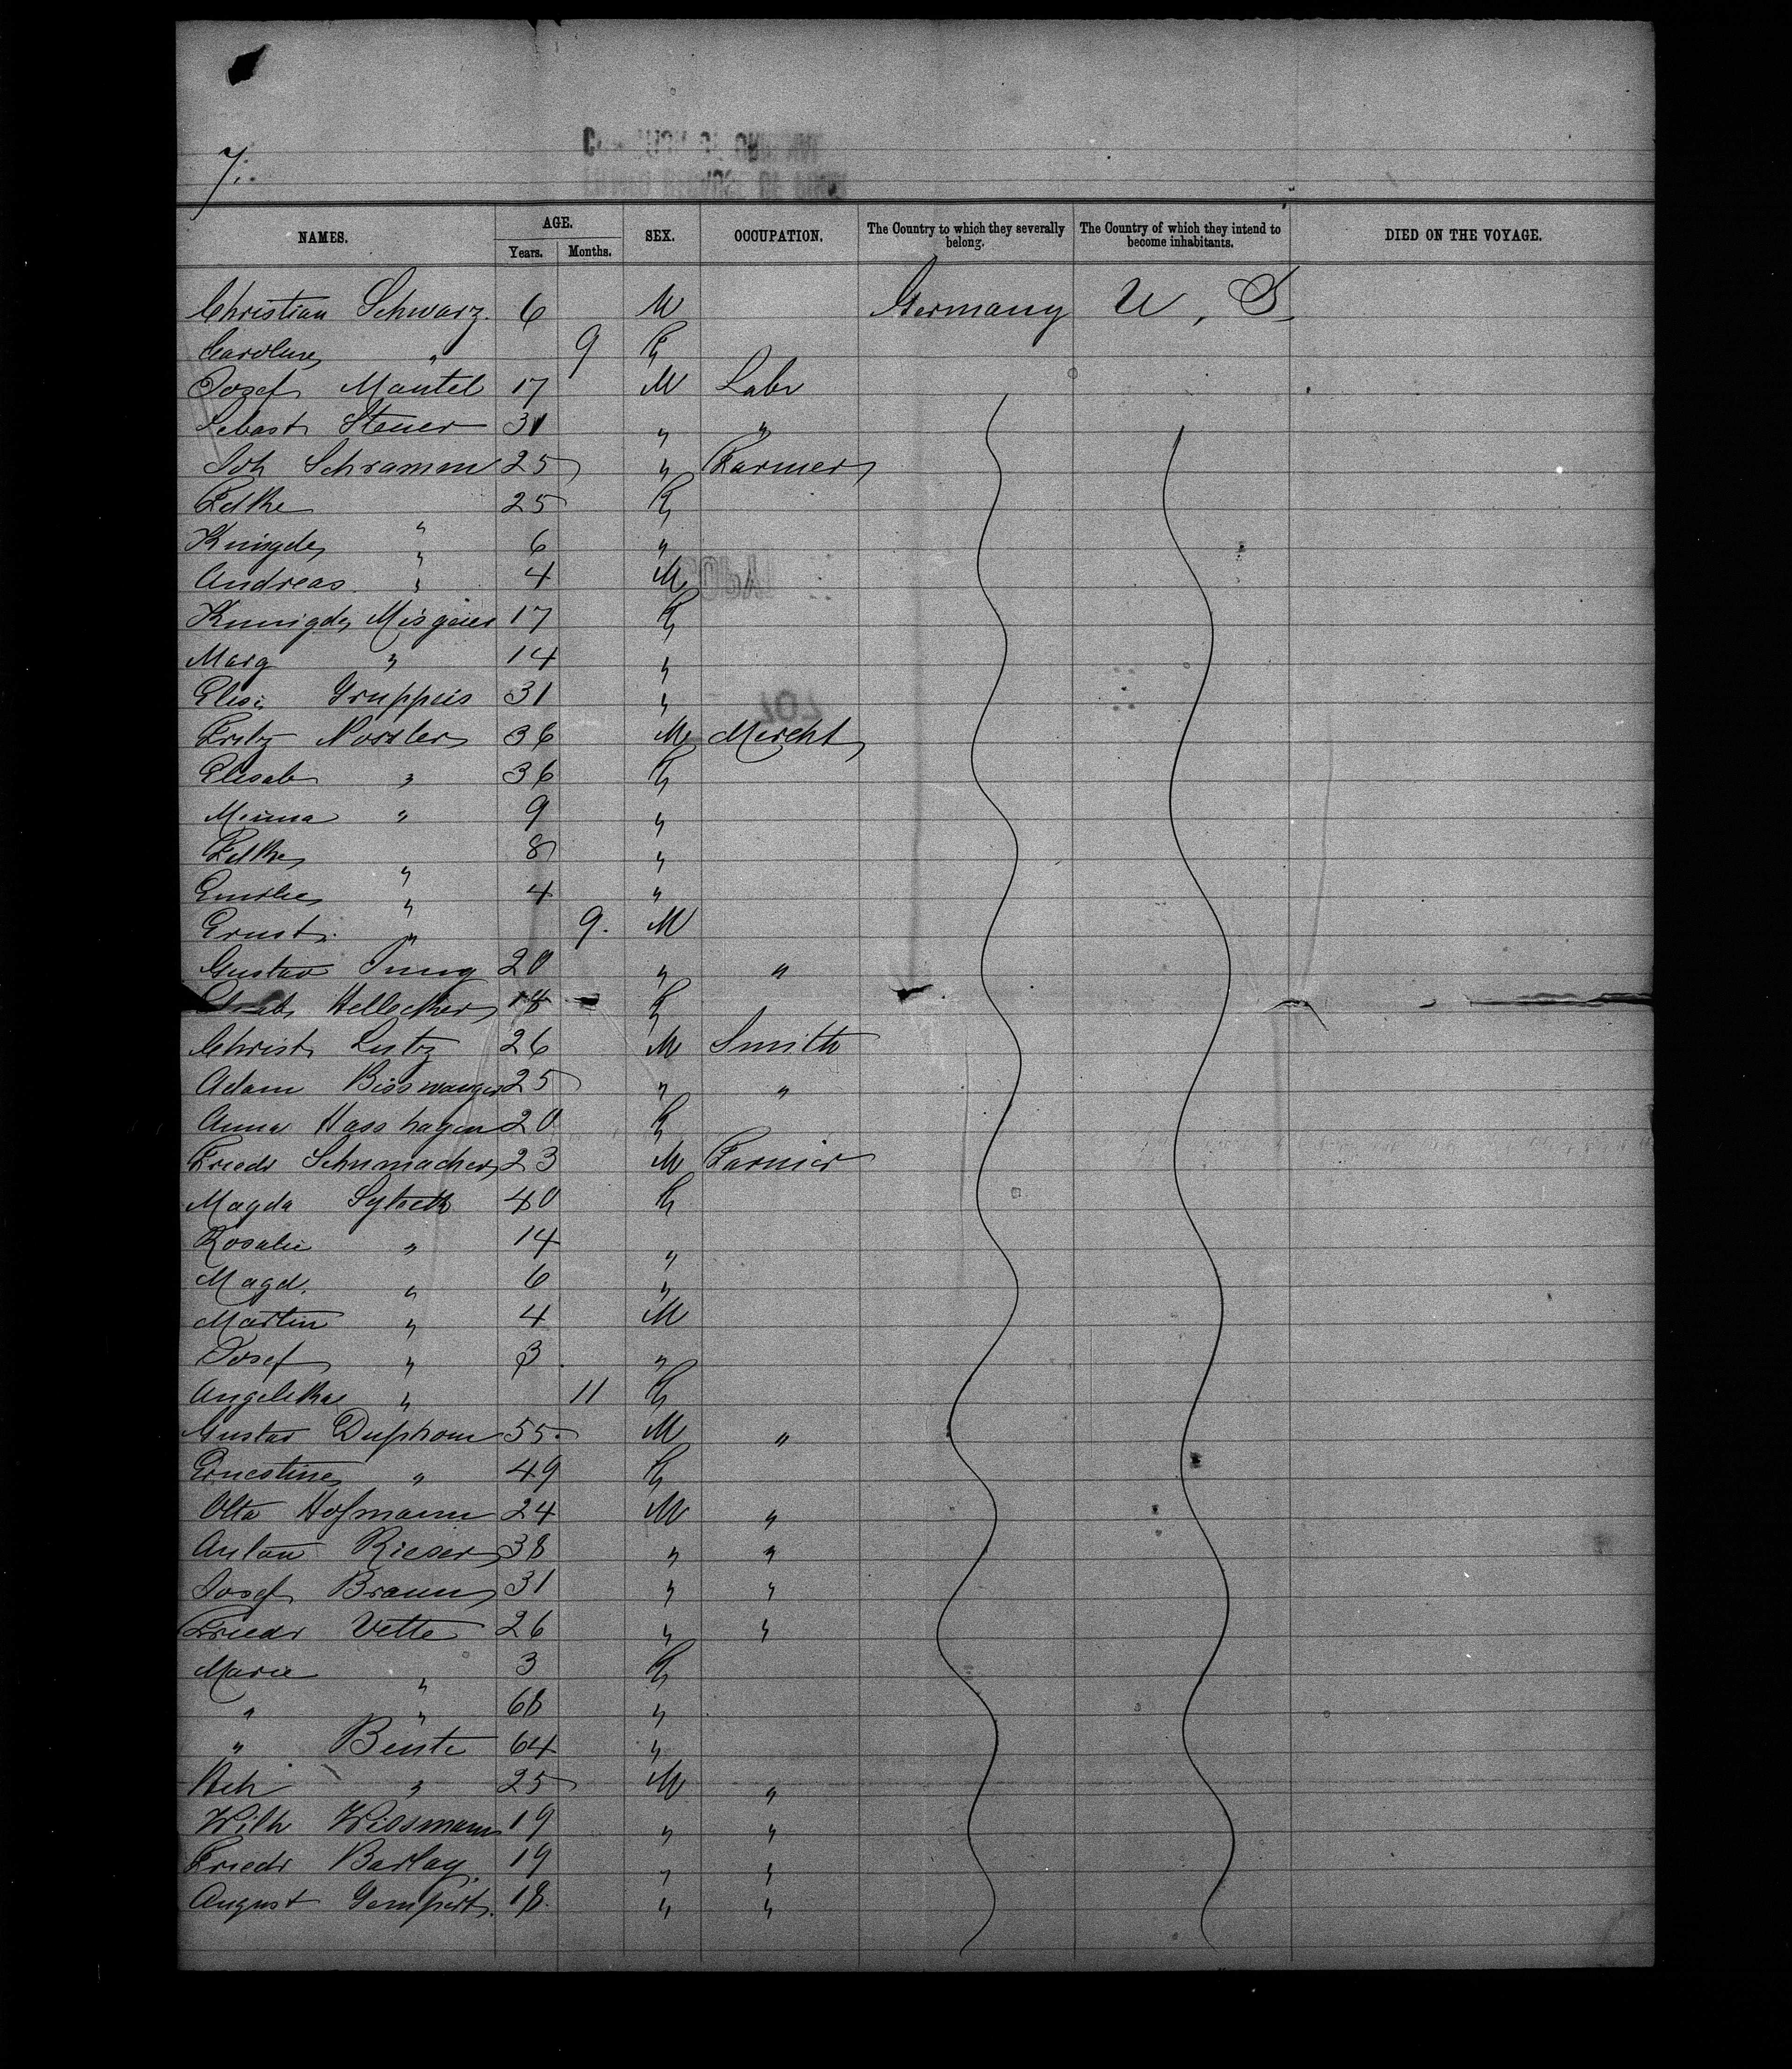 7.
NAMES. AGE. Years. Months. SEX. OCCUPATION. The Country to which they severally belong. The Country of which they intend to become inhabitants. DIED ON THE VOYAGE.
Christian Schwarz. 6 M Germany U, S,
Caroline " 9 F
Josef Mantel 17 M Labr
Sebast Steuer 31 " "
Joh Schramm 25 " Farmer
Fdke " 25 F
Kunigde " 6 "
Andreas " 4 M
Kunigde Misgeier 17 F
Marg " 14 "
Elis: 31 "
Fritz 36 M Mercht
Elisab " 36 F
Minna " 9 "
Fdke " 8 "
Emilie " 4 "
Ernst. " 9. M
Gustav Jung 20 " "
Hellecker 18 F
Christ Lutz 26 M Smith
Adam Bisswanger 25 " "
Anna Hasshagen 20 F
Friedr Schumacher 23 M Farmer
Magda 40 F
Rosalie " 14 "
Magd. " 6 "
Martin " 4 M
Josef " 3 "
Angelika " 11 F
Gustav 55 M "
Ernestine " 49 F
Otto Hofmann 24 M "
Anton Rieser 38 " "
Josef Braun 31 " "
Friedr Vette 26 " "
Marie " 3 F
" " 68 "
" Beste 64 "
Hch " 25 M "
Wilh Wissmann 19 " "
Friedr Barlag. 19 " "
August Gempert. 18. " "